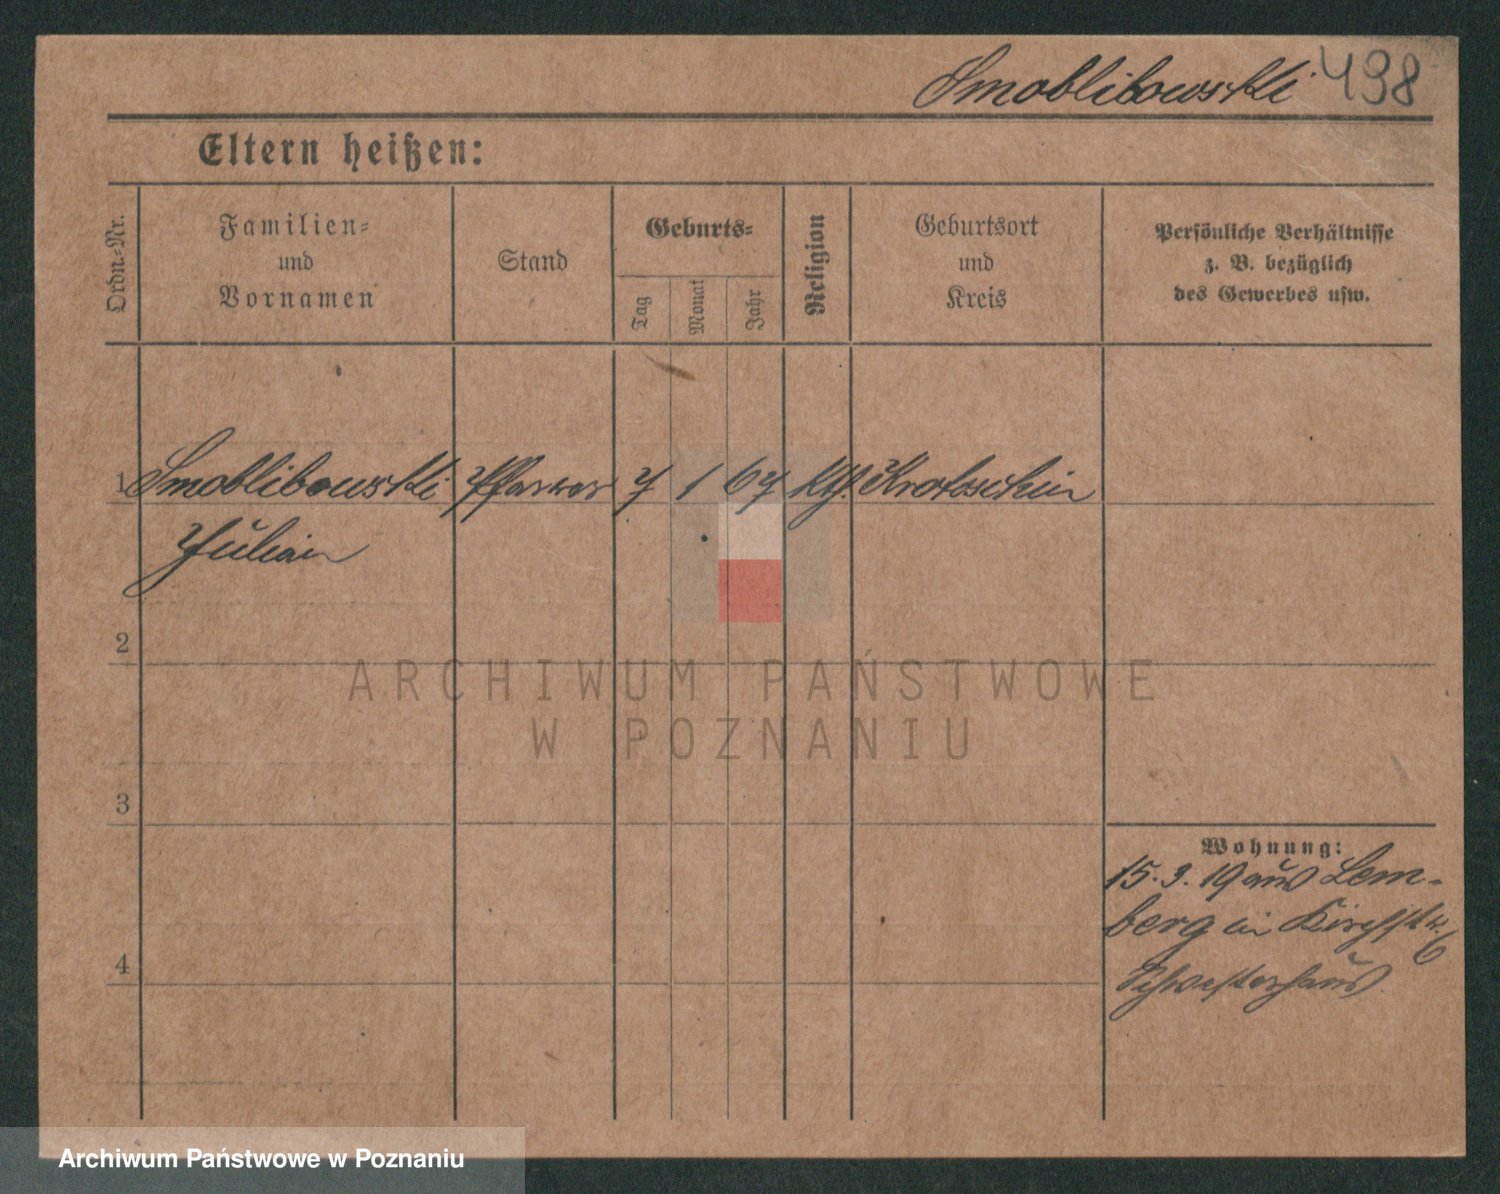 Smoblibowski 498
Eltern heißen:
Ordn.=Nr.
Familien=
und
Vornamen
Stand
Geburts=
Tag
Monat
Jahr
Religion
Geburtsort
und
Kreis
Persönliche Verhältnisse
z. B. bezüglich
des Gewerbes usw.
1 Smoblibowski Pfarrer 7 1 67 kth. Krotoschin
Julian
2
ARCHIWUM PAŃSTWOWE
W POZNANIU
3
Wohnung:
15.3.19 aus Lem-
berg in Kirchstr.
6
4
Schwesterhaus
Archiwum Państwowe w Poznaniu